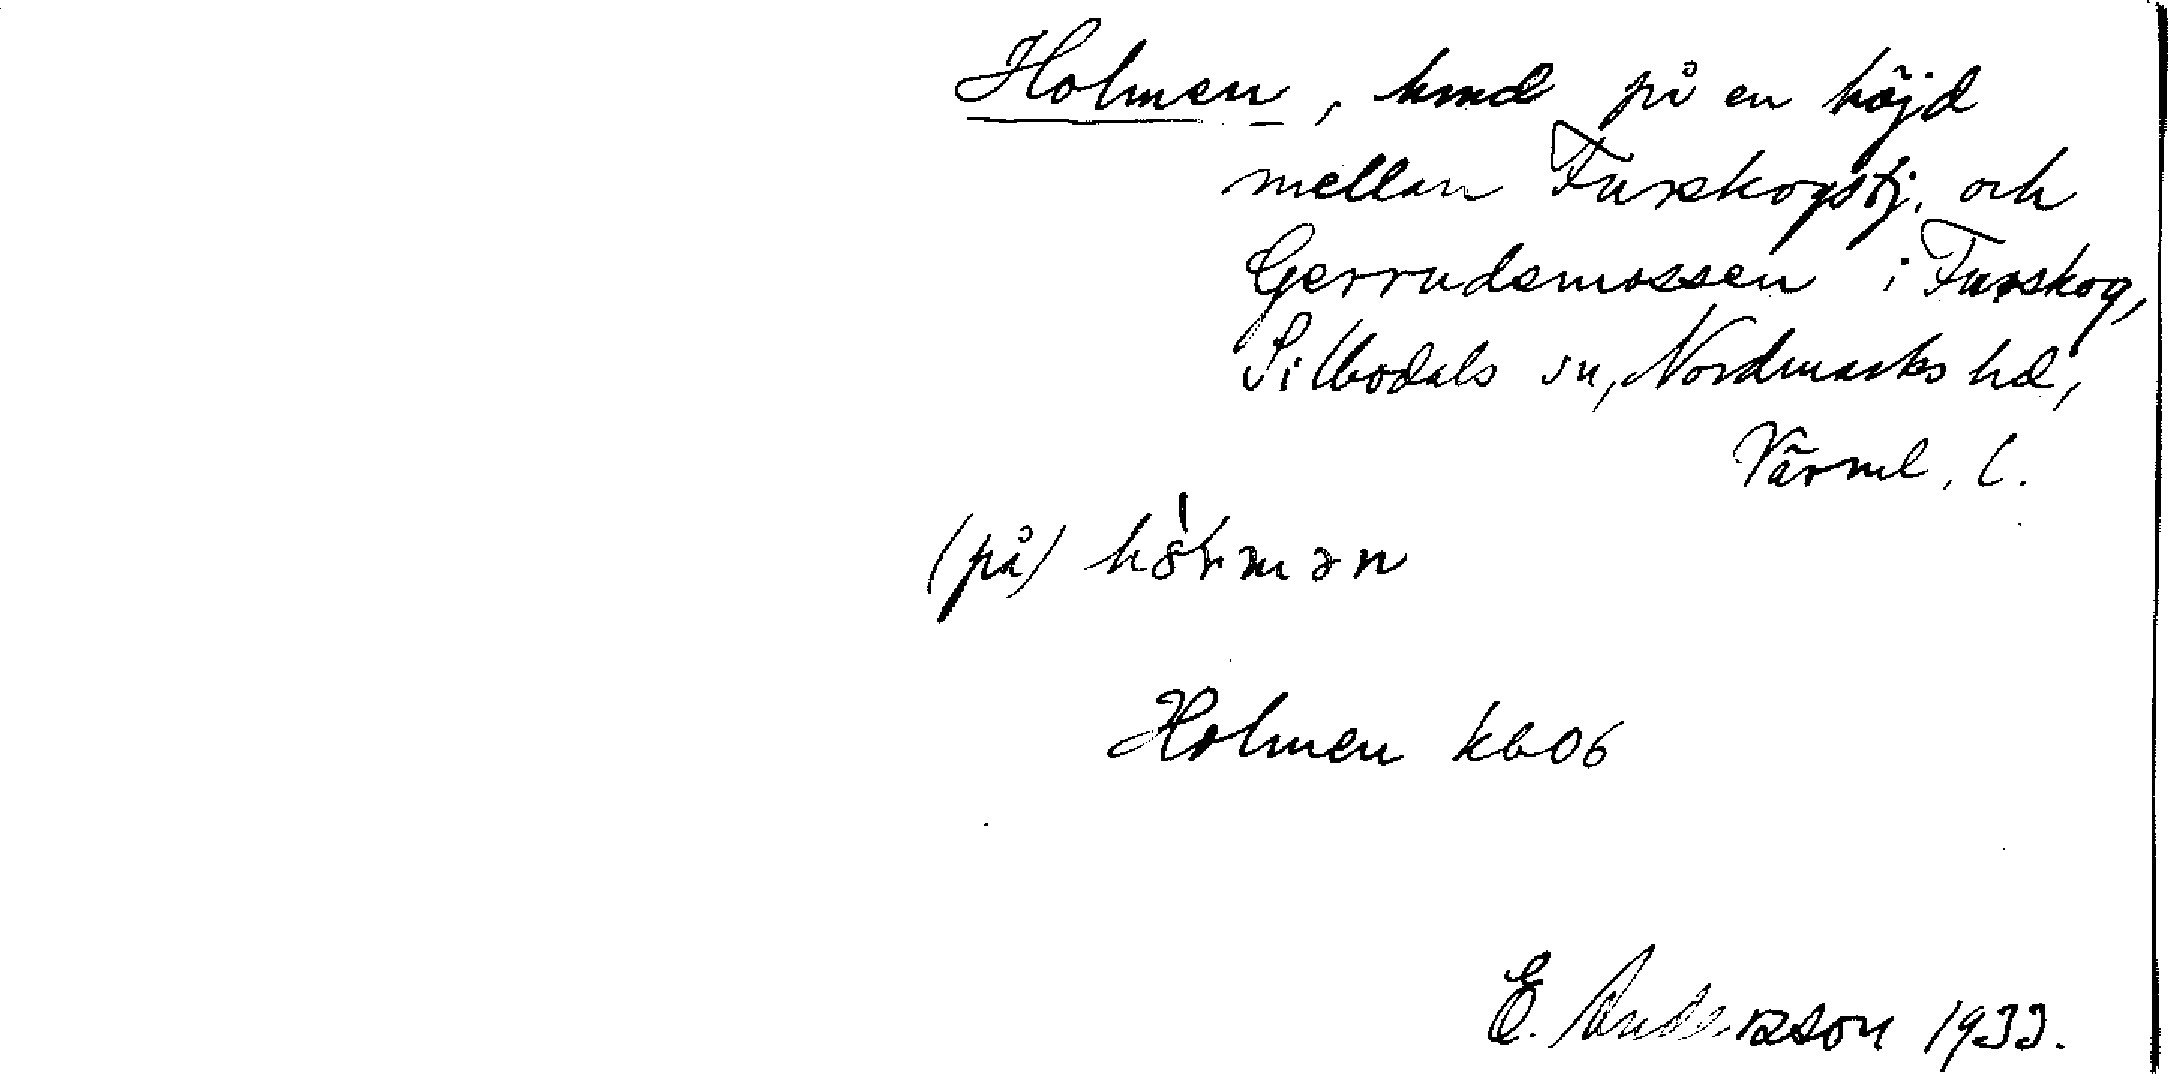 Holmen, hmd på en höjd
mellan Furskogstj. och
Gerrudsmossen i Furskog,
Silbodals sn, Nordmarks hd,
Värml. l.
(på)
Holmen kb06
E. Andersson 1933.